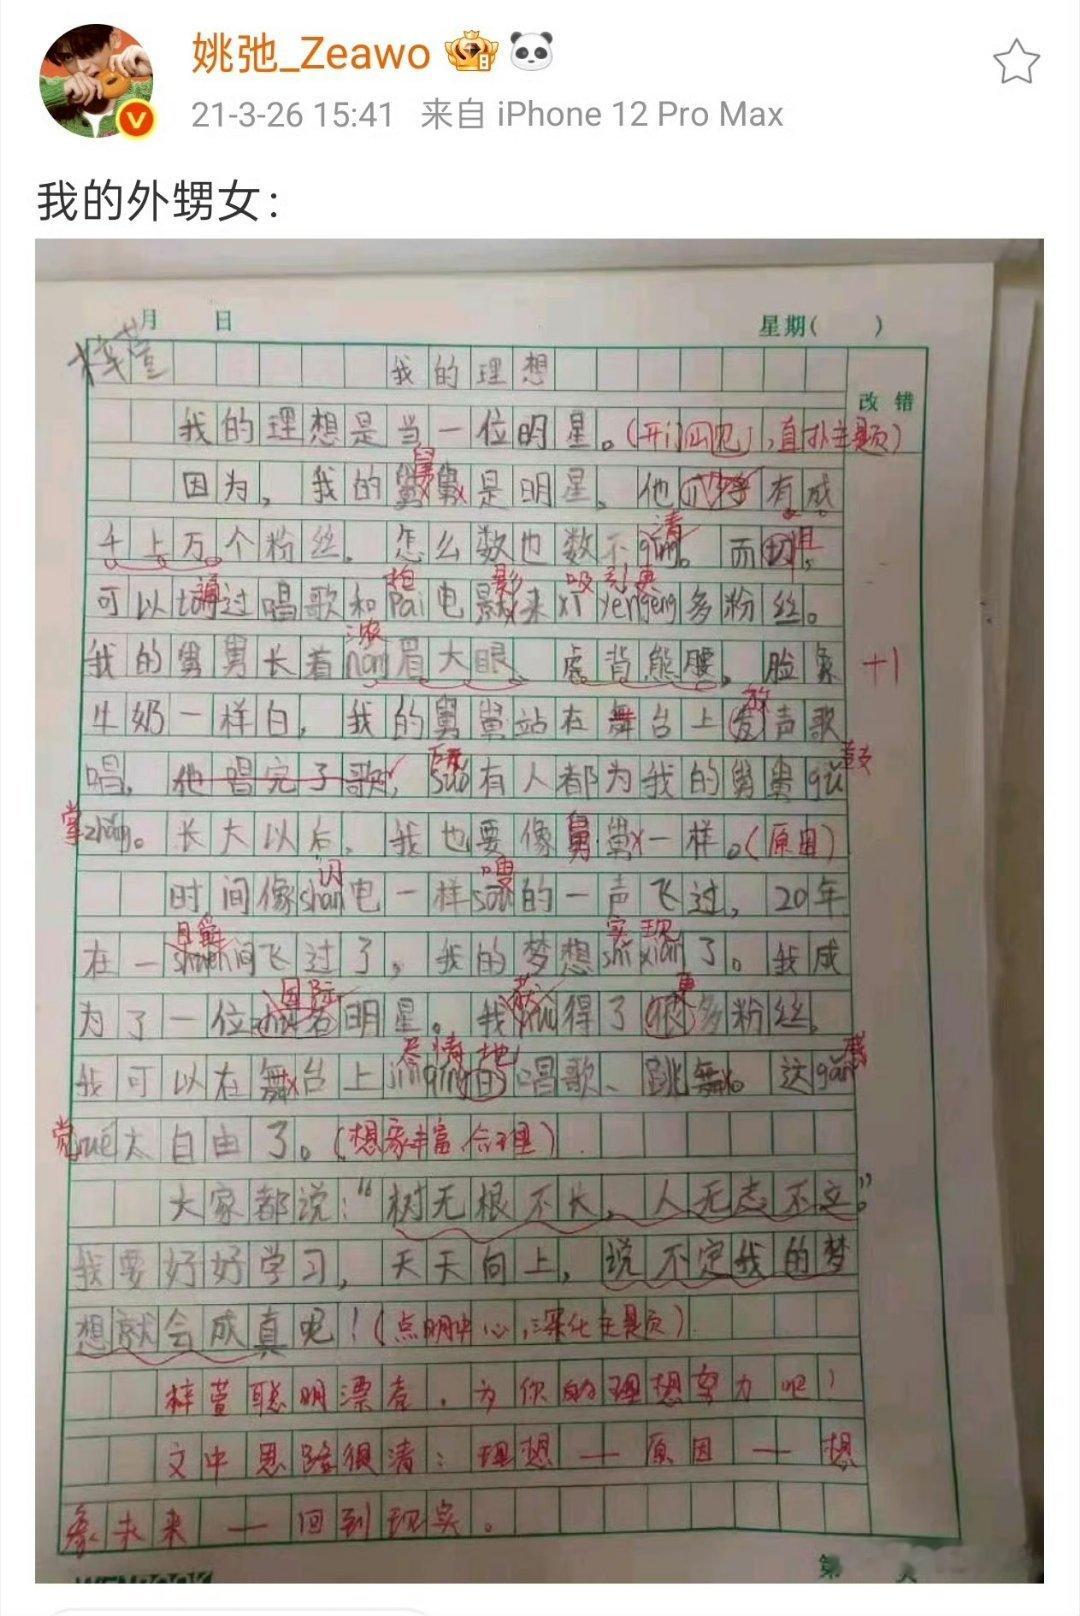 姚弛_Zeawo
21-3-26 15:41 来自 iPhone 12 Pro Max
我的外甥女：
月 日 星期( )
梓萱
我的理想
改错
我的理想是当一位明星。(开门见山,直扑主题)
舅
因为，我的舅舅是明星，他有成
清
千上万个粉丝，怎么数也数不qing。而且，
通 拍 影 吸引更
可以tong过唱歌和pai电影来xi yengeng多粉丝。
浓
我的舅舅长着nong眉大眼、虎背熊腰，脸象
+1
放
牛奶一样白，我的舅舅站在舞台上发声歌
所 鼓
唱，他唱完了歌，suo有人都为我的舅舅gu
掌zhang。长大以后，我也要像舅舅一样。(原因)
闪 嗖
时间像shan电一样sou的一声飞过，20年
眨 实现
在一shun间飞过了，我的梦想shi xian了。我成
国际 获 更
为了一位名明星。我huo得了很多粉丝，
尽情地 感
我可以在舞台上jin qing的唱歌、跳舞。这gan
觉jue太自由了。(想象丰富,合理)
大家都说：“树无根不长，人无志不立。”
我要好好学习，天天向上，说不定我的梦
想就会成真呢！(点明中心,深化主题)
梓萱聪明漂亮，为你的理想努力吧！
文中思路很清：理想—原因—想
象未来—回到现实。
第 页